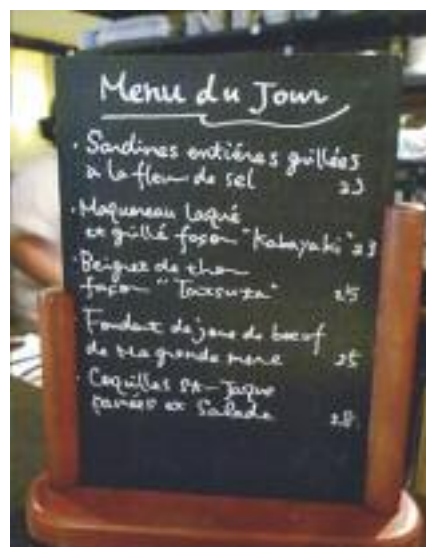 Menu du Jour
· Sardines entiéres grillées
à la fleur de sel 23
· Maquereau laqué
et grillé façon "Kabayaki" 23
· Beignet de thon
façon "Tatsuta" 25
· Fondant de joue de boeuf
de ma grande mere 25
· Coquilles St-Jaque
panées et Salade 28